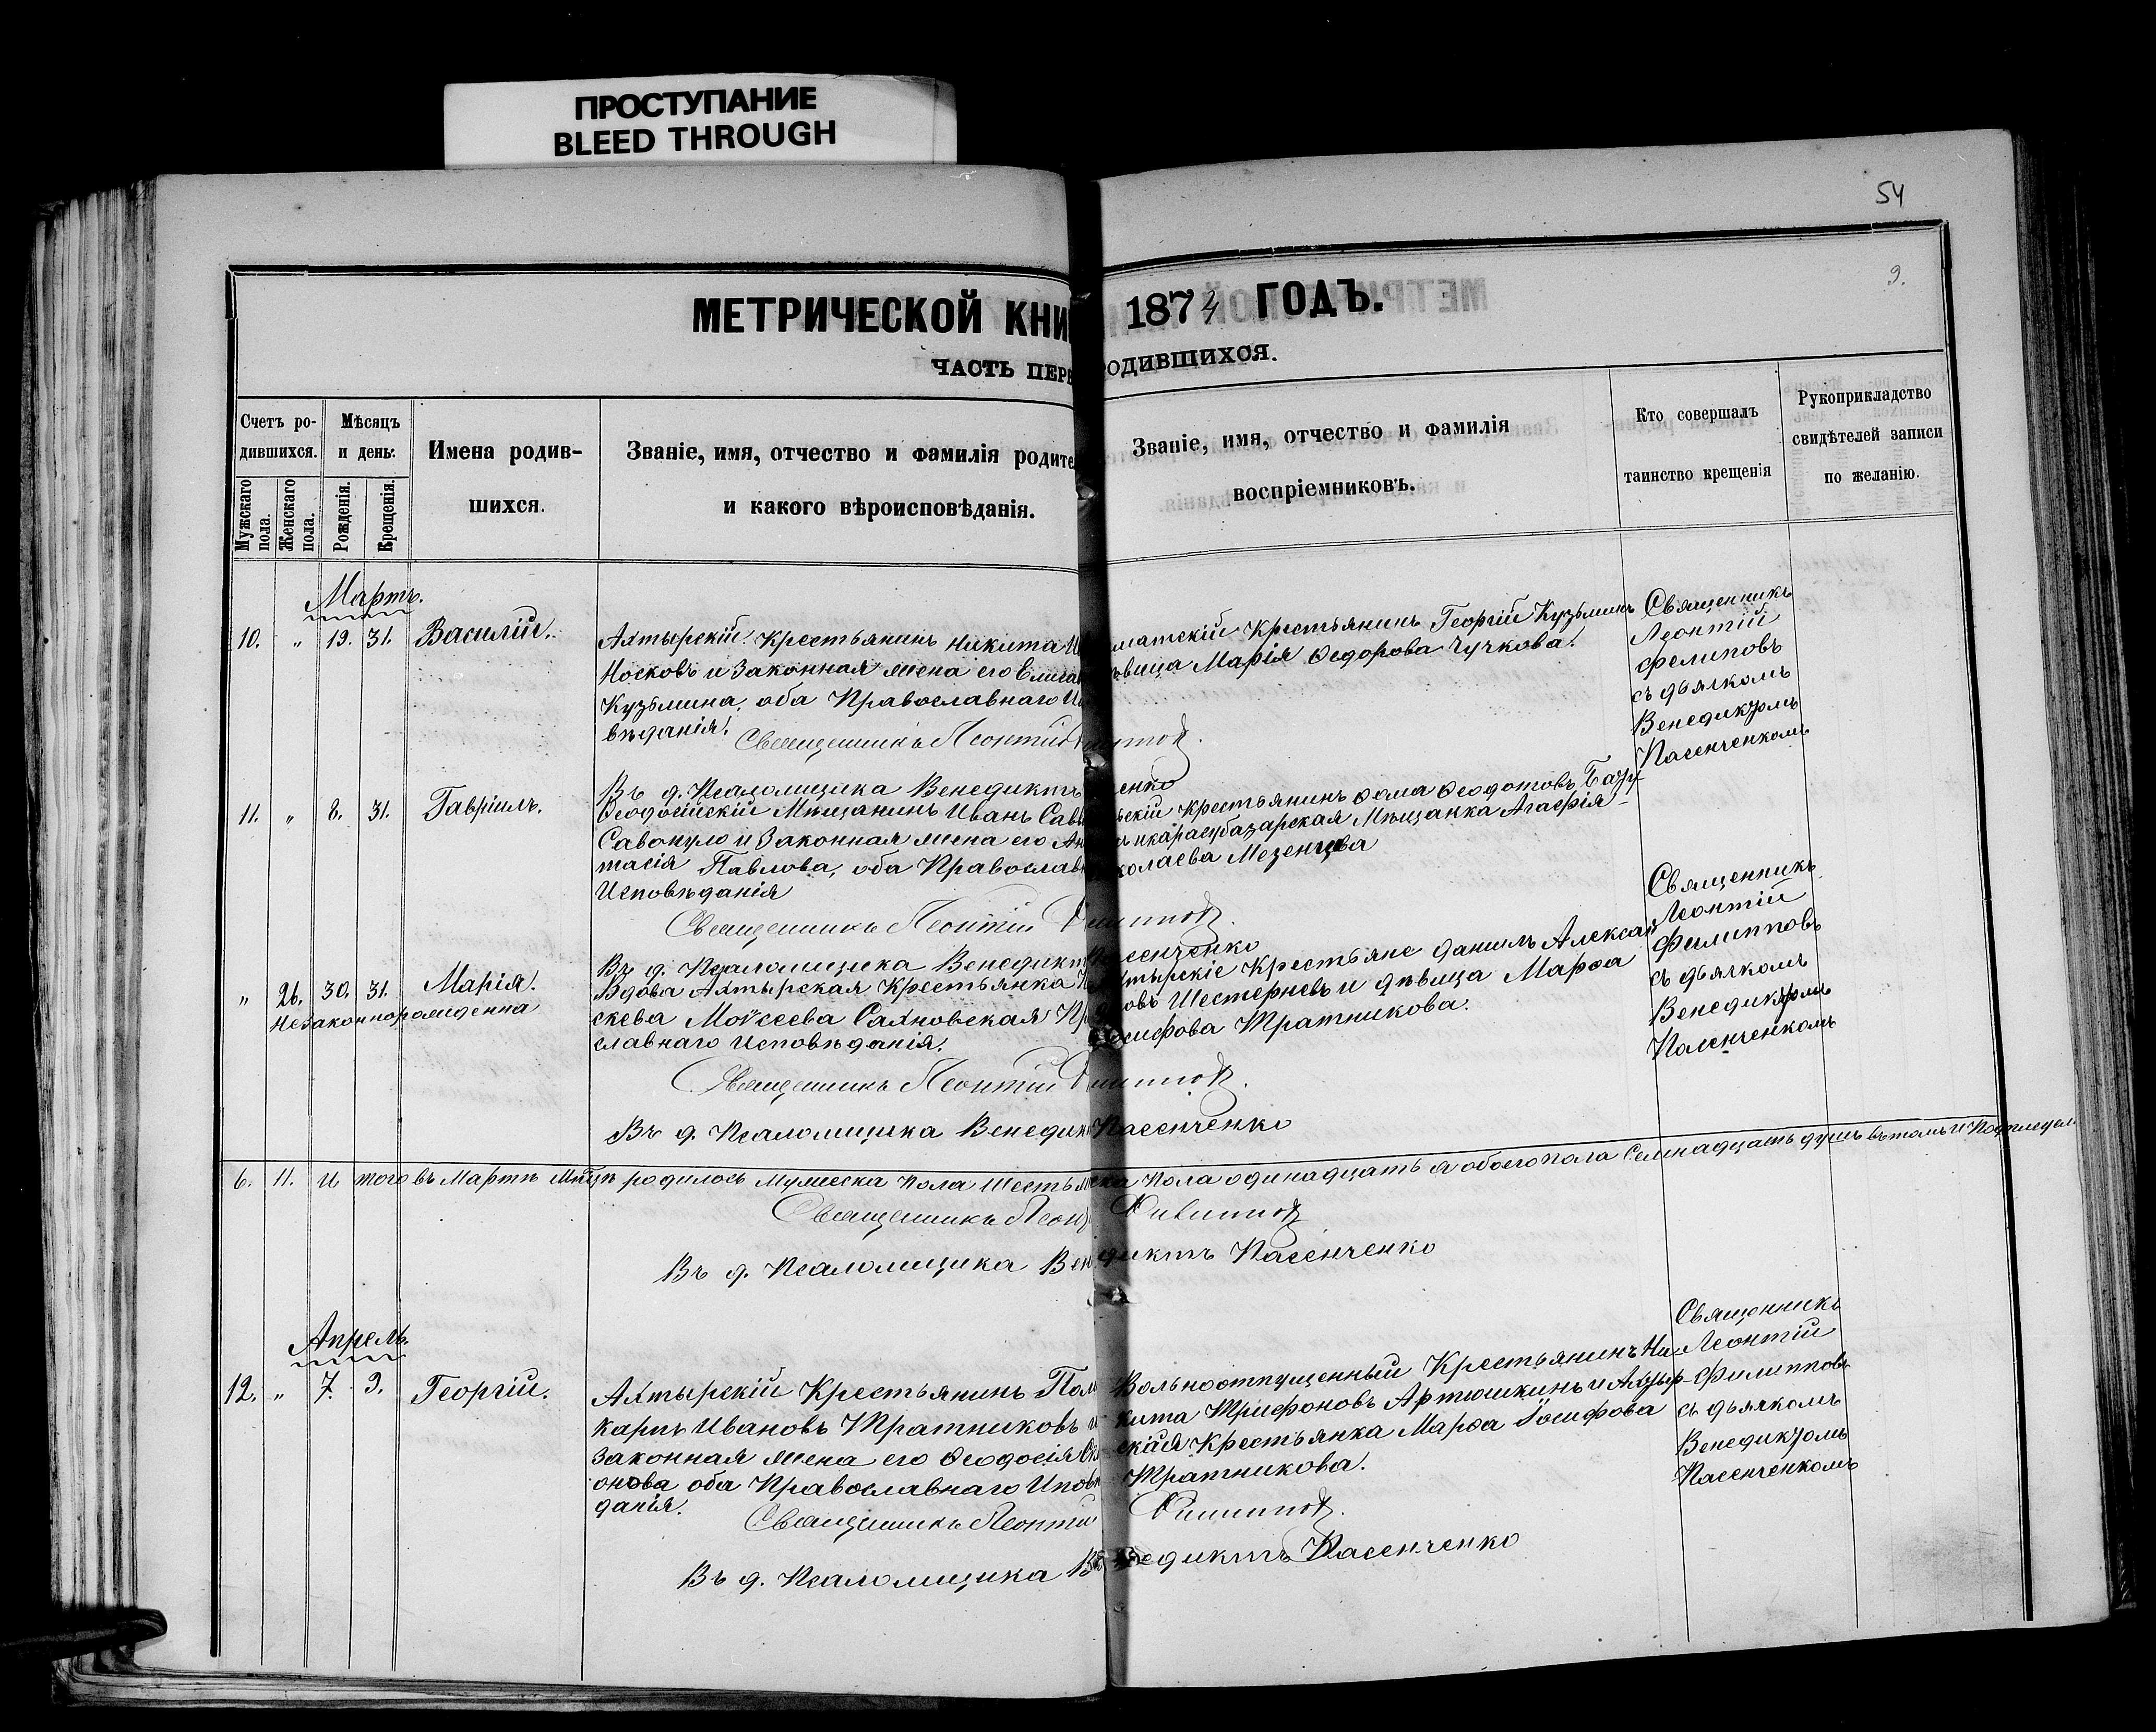 ПРОСТУПАНИЕ
BLEED THROUGH
54
9.
МЕТРИЧЕСКОЙ КНИ 1874 ГОДЪ.
ЧАСТЬ ПЕР ОДИВШИХСЯ.
Счетъ ро-
дившихся.
Мужскаго пола.
Женскаго пола.
Мѣсяцъ
и день.
Рожденія.
Крещенія.
Имена родив-
шихся.
Званіе, имя, отчество и фамилія родите
и какого вѣроисповѣданія.
Званіе, имя, отчество и фамилія
воспріемниковъ.
Кто совершалъ
таинство крещенія
Рукоприкладство
свидѣтелей записи
по желанію.
Мартъ.
10. " 19. 31. Василій.
Ахтырскій Крестьянинъ Никита
Носковъ и Законная жена его Елиса
Кузьмина, оба Православнаго Ис
вѣданія.
матскій Крестьянинъ Георгій Кузьминъ
вица Марія Ѳедорова Чучкова.
Священникъ
Леонтій
Фелиповъ
съ дьячкомъ
Венедиктомъ
Пасенченкомъ
Священникъ Леонтій
Въ д. Псаломщика Венедиктъ енко
11. " 8. 31. Гавріилъ.
Ѳеодосійскій Мѣщанинъ Иванъ Савв
Савопуло и Законная жена его Ан
тасія Павлова, оба Православ
Исповѣданія
скій Крестьянинъ Ѳома Ѳеодотовъ Базу-
и карасубазарская Мѣщанка Агафія
колаева Мезенцева
Священникъ Леонтій
Въ д. Псаломщика Венедикт сенченко
" 26. 30. 31. Марія.
Незаконнорожденна
Вдова Ахтырская Крестьянка П
скева Моѵсеева Сахновская Пр
славнаго Исповѣданія.
тырскіе Крестьяне Даниилъ Алексан
овъ Шестерневъ и дѣвица Марѳа
осифова Тратникова.
Священникъ
Леонтій
Филипповъ
съ дьячкомъ
Венедиктомъ
Пасенченкомъ
Священникъ Леонтій
Въ д. Псаломщика Венедик Пасенченко
6. 11. И того въ Мартѣ родилось Мужеска пола шесть ска пола одинадцать а обоего пола Семнадцать душъ въ томъ и
Священникъ Леон Филиппов
Въ д. Псаломщика Вен диктъ Пасенченко
Апрель.
12. " 7. 9. Георгій.
Ахтырскій Крестьянинъ Поли
карпъ Ивановъ Тратниковъ и
законная жена его Ѳеодосія
онова оба Православнаго Испов
данія.
Вольноотпущенный Крестьянинъ Ни
кита Трифоновъ Артюшкинъ и Ахтыр-
ская Крестьянка Марѳа Іосифова
Тратникова.
Священникъ
Леонтій
Филипповъ
съ дьячкомъ
Венедиктомъ
Пасенченкомъ
Священникъ Леонтій Филиппов
Въ д. Псаломщика Венедиктъ Пасенченко